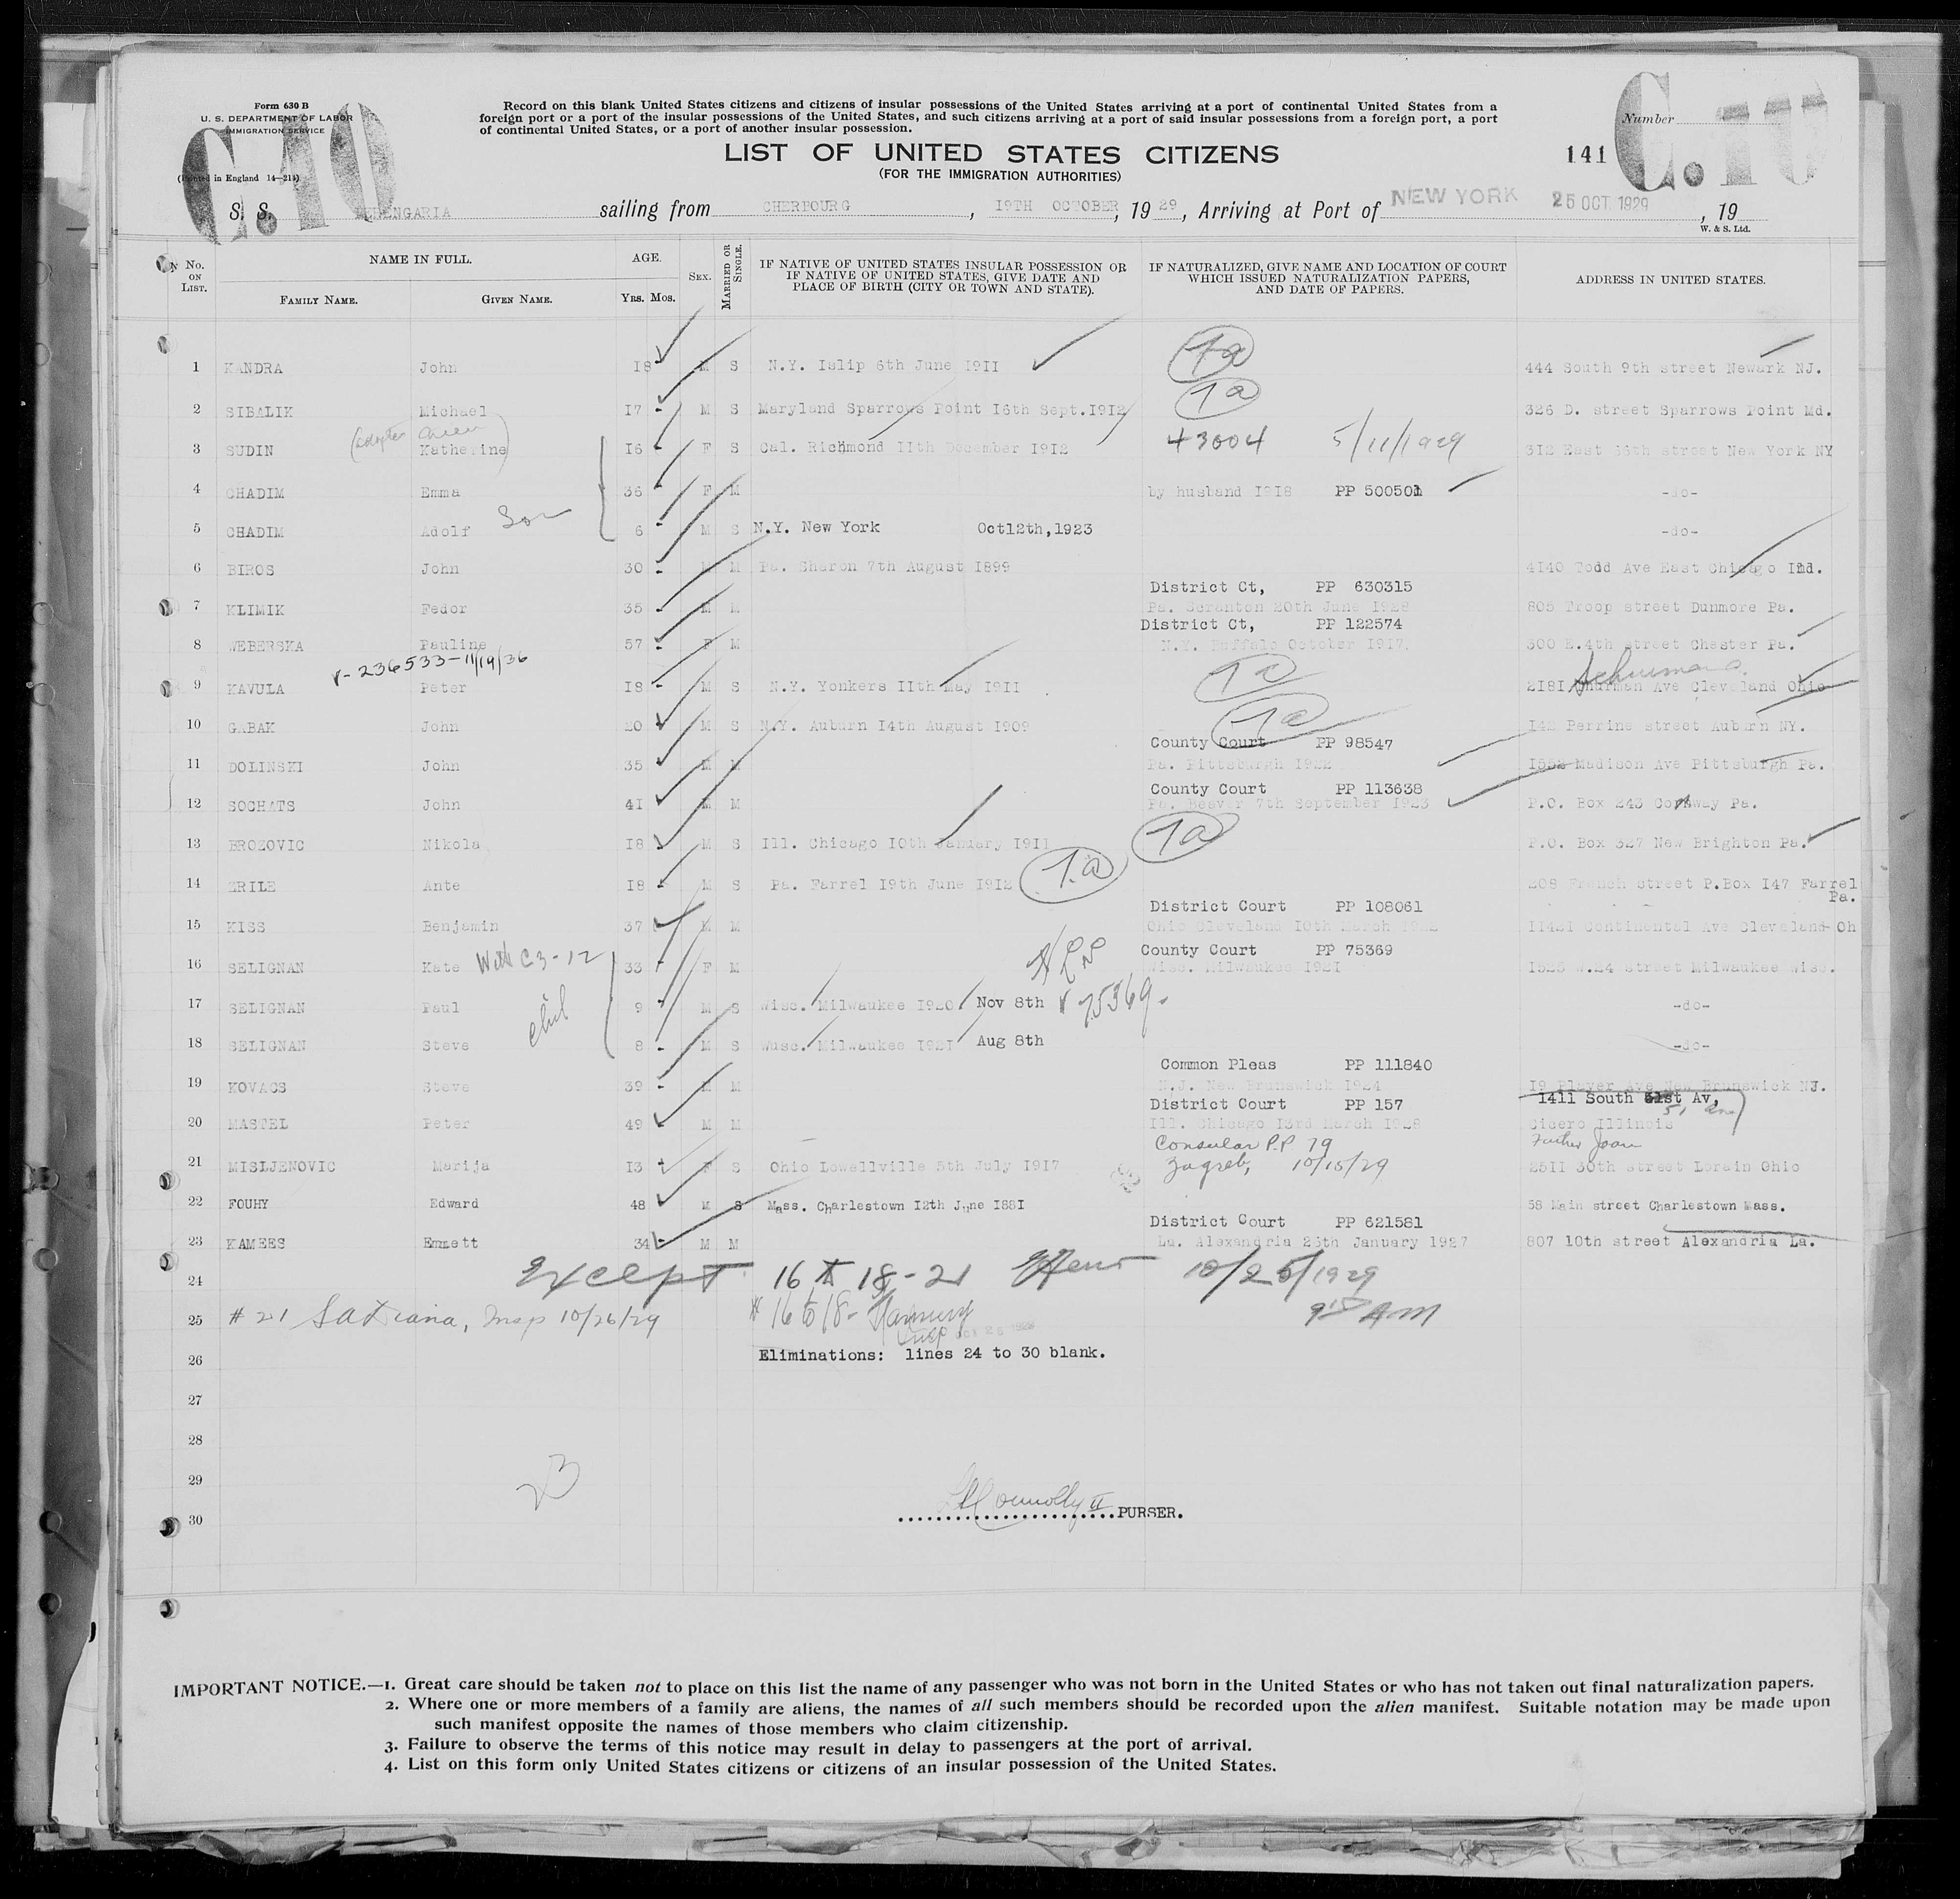 Form 630 B
U. S. DEPARTMENT OF LABOR
IMMIGRATION SERVICE
(Printed in England 14—214)
C.10
Record on this blank United States citizens and citizens of insular possessions of the United States arriving at a port of continental United States from a
foreign port or a port of the insular possessions of the United States, and such citizens arriving at a port of said insular possessions from a foreign port, a port
of continental United States, or a port of another insular possession.
LIST OF UNITED STATES CITIZENS
(FOR THE IMMIGRATION AUTHORITIES)
141
Number
C.10
S. S. BERENGARIA sailing from CHERBOURG, 19TH OCTOBER, 1929, Arriving at Port of NEW YORK 25 OCT 1929, 19
W. & S. Ltd.
No. ON LIST. NAME IN FULL. FAMILY NAME. GIVEN NAME. AGE. YRS. MOS. SEX. MARRIED OR SINGLE. IF NATIVE OF UNITED STATES INSULAR POSSESSION OR IF NATIVE OF UNITED STATES, GIVE DATE AND PLACE OF BIRTH (CITY OR TOWN AND STATE). IF NATURALIZED, GIVE NAME AND LOCATION OF COURT WHICH ISSUED NATURALIZATION PAPERS, AND DATE OF PAPERS. ADDRESS IN UNITED STATES.
1 KANDRA John 18 M S N.Y. Islip 6th June 1911 1a 444 South 9th street Newark NJ.
2 SIBALIK Michael 17 M S Maryland Sparrows Point 16th Sept.1912 1a 326 D. street Sparrows Point Md.
3 SUDIN Katherine 16 F S Cal. Richmond 11th December 1912 43004 5/11/1929 312 East street New York NY
4 CHADIM Emma 36 F M by husband 1918 PP 500501 -do-
5 CHADIM Adolf Son 6 M S N.Y. New York Oct12th,1923 -do-
6 BIROS John 30 M M Pa. Sharon 7th August 1899 4140 Todd Ave East Chicago Ind.
District Ct, PP 630315
7 KLIMIK Fedor 35 M M Pa. Scranton 20th June 1928 805 Troop street Dunmore Pa.
District Ct, PP 122574
8 WEBERSKA Pauline 57 F M N.Y. Buffalo October 1917. 300 E.4th street Chester Pa.
v-236533-11/19/36
9 KAVULA Peter 18 M S N.Y. Yonkers 11th May 1911 1a 2181 Shurman Ave Cleveland Ohio
10 GABAK John 20 M S N.Y. Auburn 14th August 1909 1a 142 Perrine street Auburn NY.
County Court PP 98547
11 DOLINSKI John 35 M M Pa. Pittsburgh 1922 1552 Madison Ave Pittsburgh Pa.
County Court PP 113638
12 SOCHATS John 41 M M Pa. Beaver 7th September 1923 P.O. Box 243 Conway Pa.
13 BROZOVIC Nikola 18 M S Ill. Chicago 10th January 1911 1a P.O. Box 327 New Brighton Pa.
14 ERILE Ante 18 M S Pa. Farrel 19th June 1912 1a 208 French street P.Box 147 Farrel
Pa.
District Court PP 108061
15 KISS Benjamin 37 M M Ohio Cleveland 10th March 11421 Continental Ave Cleveland Oh
With C3-12 County Court PP 75369
16 SELIGNAN Kate 33 F M Wisc. Milwaukee 1921 1526 W.24 street Milwaukee Wisc.
17 SELIGNAN Paul 9 M S Wisc. Milwaukee 1920 Nov 8th v 75369 -do-
18 SELIGNAN Steve 8 M S Wusc. Milwaukee 1921 Aug 8th -do-
Common Pleas PP 111840
19 KOVACS Steve 39 M M N.J. New Brunswick 1924 19 Player Ave New Brunswick NJ.
District Court PP 157 1411 South 51st Av,
20 MASTEL Peter 49 M M Ill. Chicago 13rd March 1928 Cicero Illinois
Consular P.P. 79
21 MISLJENOVIC Marija 13 F S Ohio Lowellville 5th July 1917 Zagreb, 10/15/29 2511 30th street Lorain Ohio
22 FOUHY Edward 48 M S Mass. Charlestown 12th June 1881 58 Main street Charlestown Mass.
District Court PP 621581
23 KAMEES Emmett 34 M M La. Alexandria 26th January 1927 807 10th street Alexandria La.
24 Except 16 to 18-21 10/25/1929
25 #21 Satriana, Insp 10/26/29 #16 to 18- AM
26 Eliminations: lines 24 to 30 blank.
27
28
29 23
30 Connolly PURSER.
IMPORTANT NOTICE.—1. Great care should be taken not to place on this list the name of any passenger who was not born in the United States or who has not taken out final naturalization papers.
2. Where one or more members of a family are aliens, the names of all such members should be recorded upon the alien manifest. Suitable notation may be made upon
such manifest opposite the names of those members who claim citizenship.
3. Failure to observe the terms of this notice may result in delay to passengers at the port of arrival.
4. List on this form only United States citizens or citizens of an insular possession of the United States.